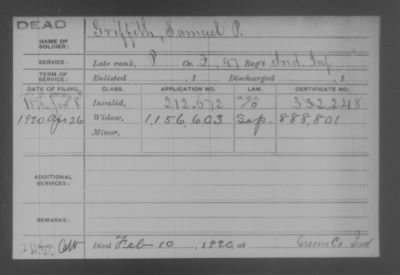 DEAD
NAME OF SOLDIER: Griffith, Samuel P.
SERVICE: Late rank, P Co. F, 97 Reg't Ind. Inf
TERM OF SERVICE: Enlisted , 1 Discharged , 1
DATE OF FILING. CLASS. APPLICATION NO. LAW. CERTIFICATE NO.
Invalid, 212,672 332,248
1920 Apr 26 Widow, 1,156,603 Sep. 888,801
Minor,
ADDITIONAL SERVICES:
REMARKS:
Died Feb 10, 1920, at Greene Co. Ind